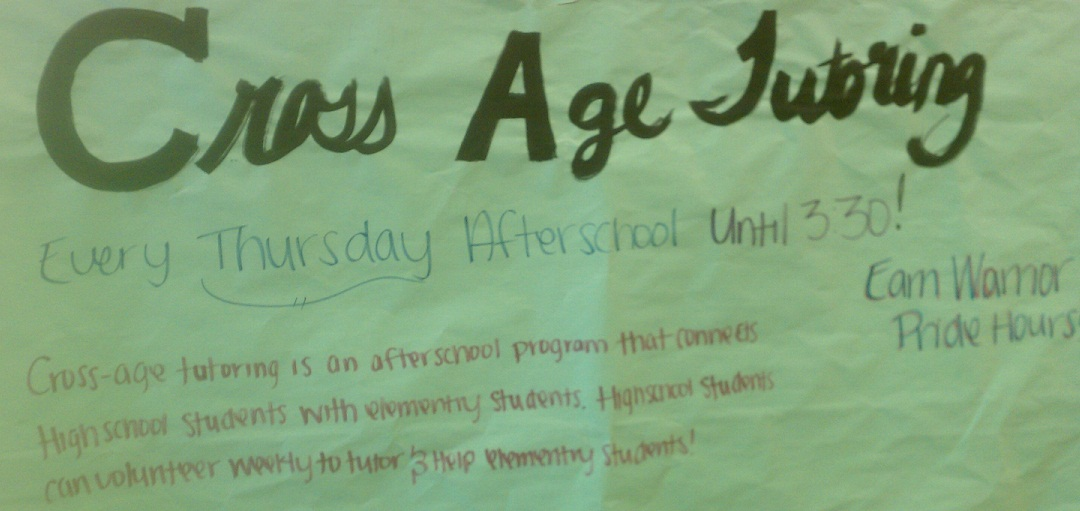 Cross Age Tutoring
Every Thursday Afterschool Until 3:30!
Earn Warrior
Pride Hours
Cross-age tutoring is an afterschool program that connects
Highschool students with elementry students. Highschool students
can volunteer weekly to tutor & Help elementry students!